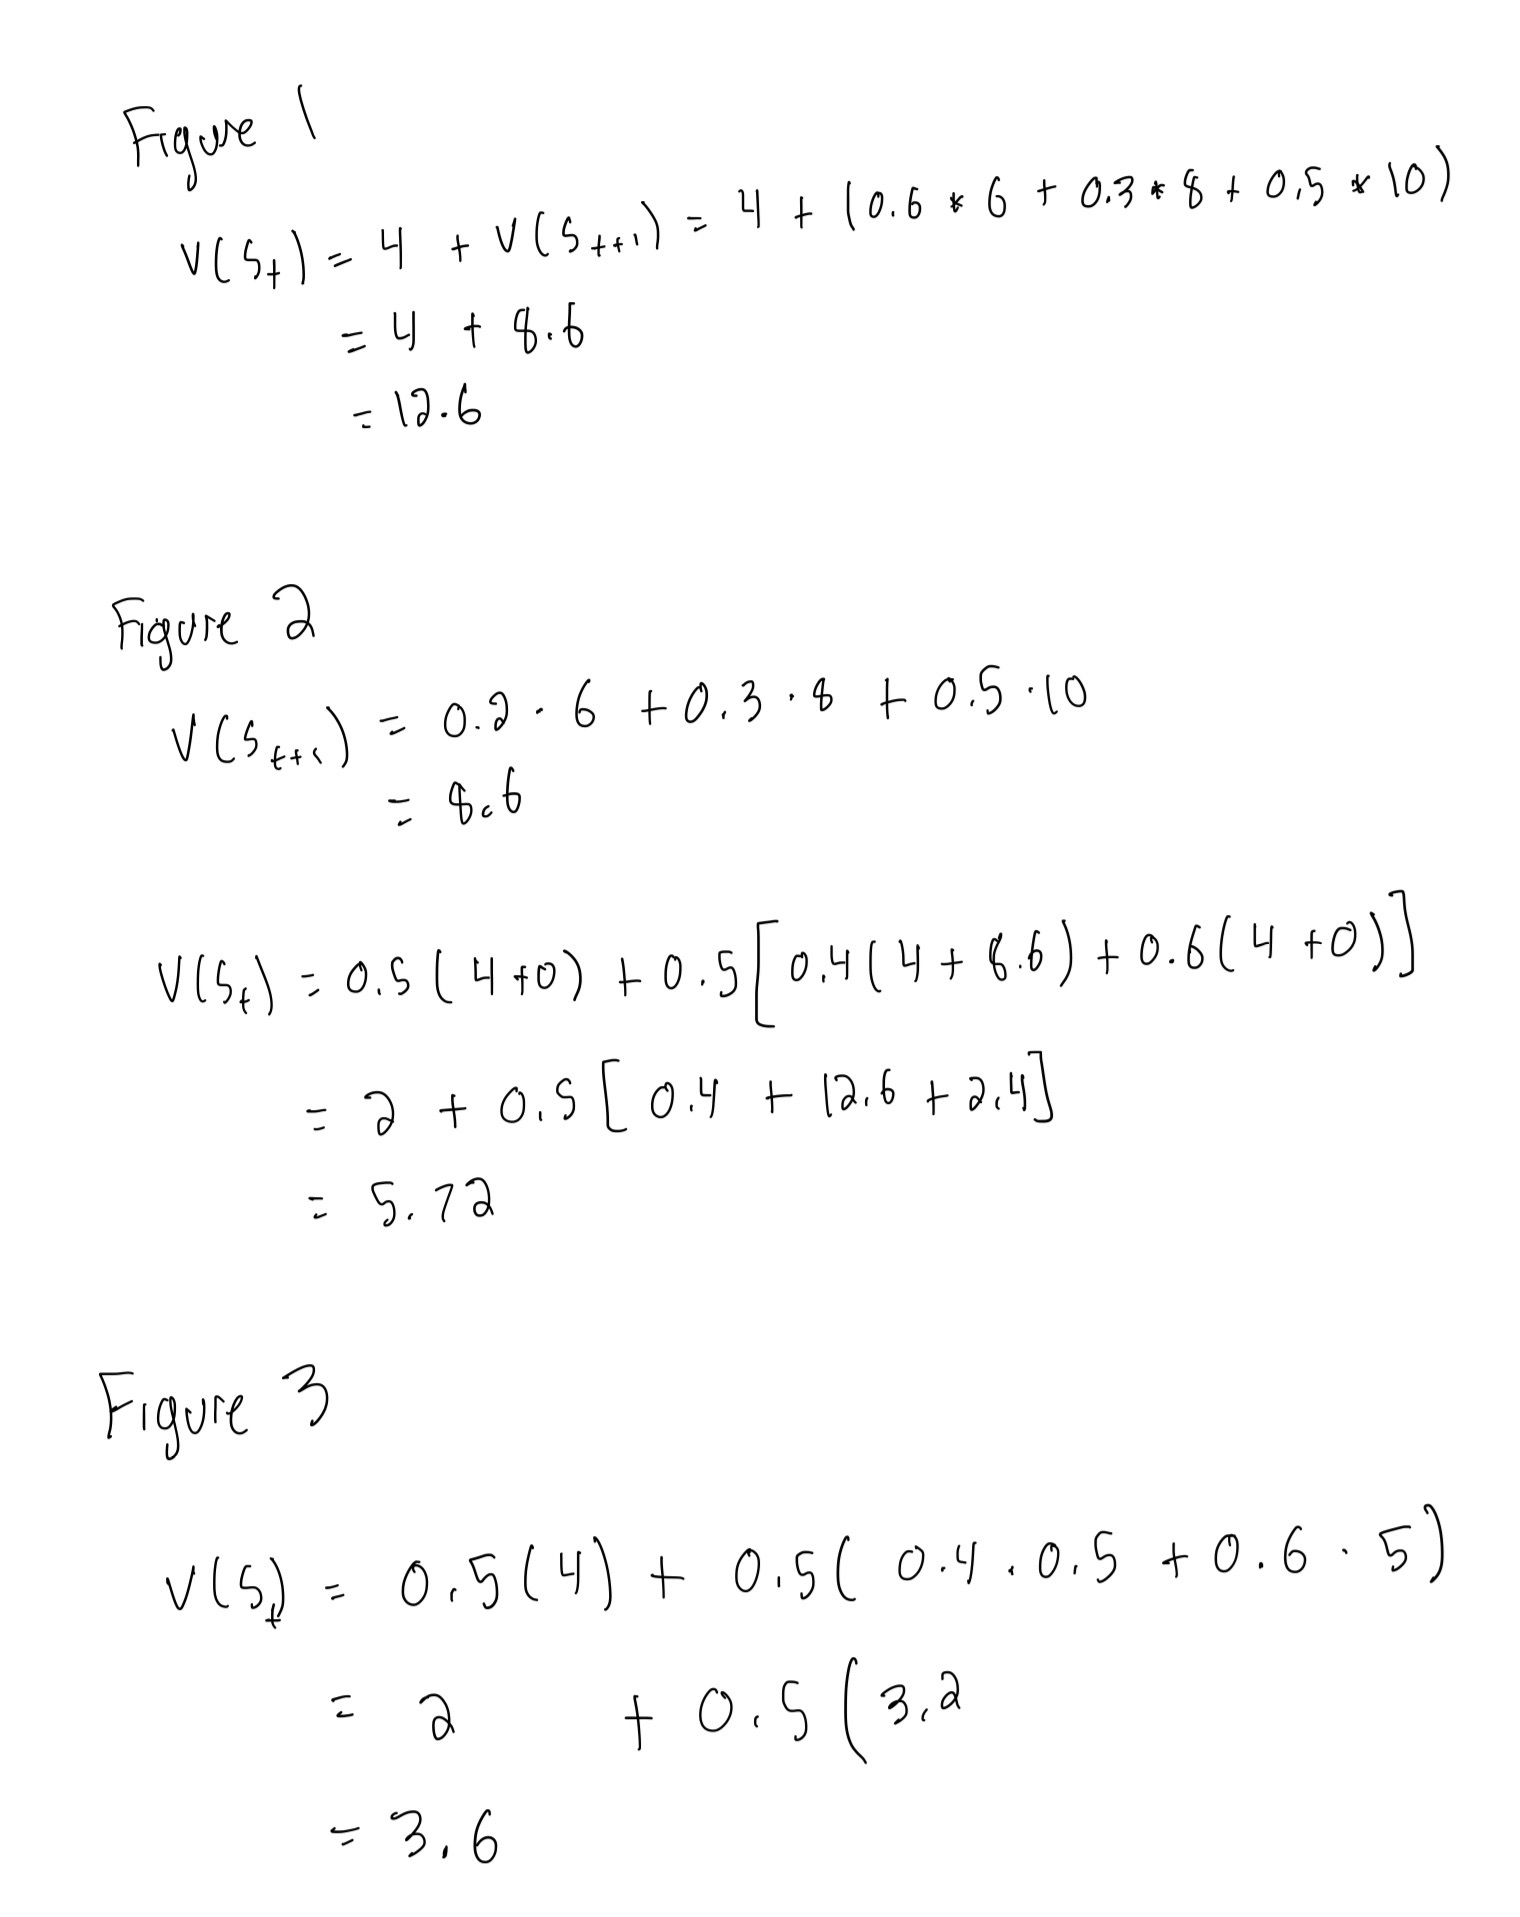 Figure 1
V(S_t) = 4 + V(S_{t+1}) = 4 + (0.6 * 6 + 0.3 * 8 + 0.5 * 10)
= 4 + 8.6
= 12.6
Figure 2
V(S_{t+1}) = 0.2 · 6 + 0.3 · 8 + 0.5 · 10
= 8.6
V(S_t) = 0.5 ( 4+0) + 0.5 [0.4(4 + 8.6) + 0.6(4 +0)]
= 2 + 0.5 [0.4 + 12.6 + 2.4]
= 5.72
Figure 3
V(S_t) = 0.5(4) + 0.5( 0.4 · 0.5 + 0.6 · 5)
= 2 + 0.5 (3.2
= 3.6